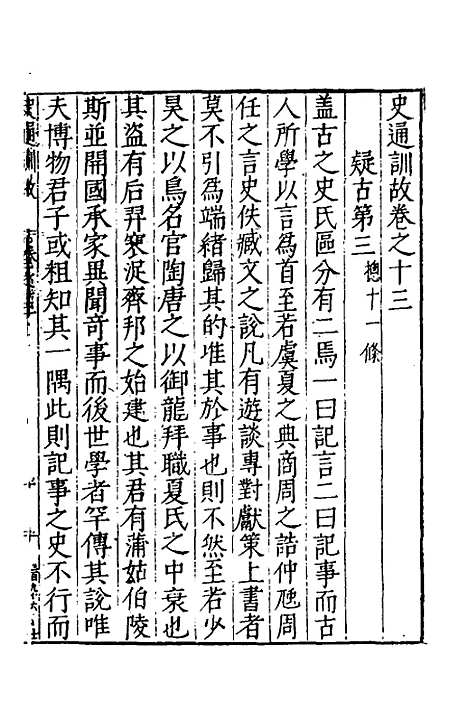 史通訓故卷之十三
疑古第三 總十一條
蓋古之史氏區分有二焉一曰記言二曰記事而古
人所學以言為首至若虞夏之典商周之誥仲虺周
任之言史佚臧文之說凡有遊談專對獻策上書者
莫不引為端緒歸其的准其於事也則不然至若少
昊之以鳥名官陶唐之以御龍拜職夏氏之中衰也
其盜有后羿寒浞齊邦之始建也其君有蒲姑伯陵
斯並開國承家異聞奇事而後世學者罕傳其說唯
夫博物君子或粗知其一隅此則記事之史不行而